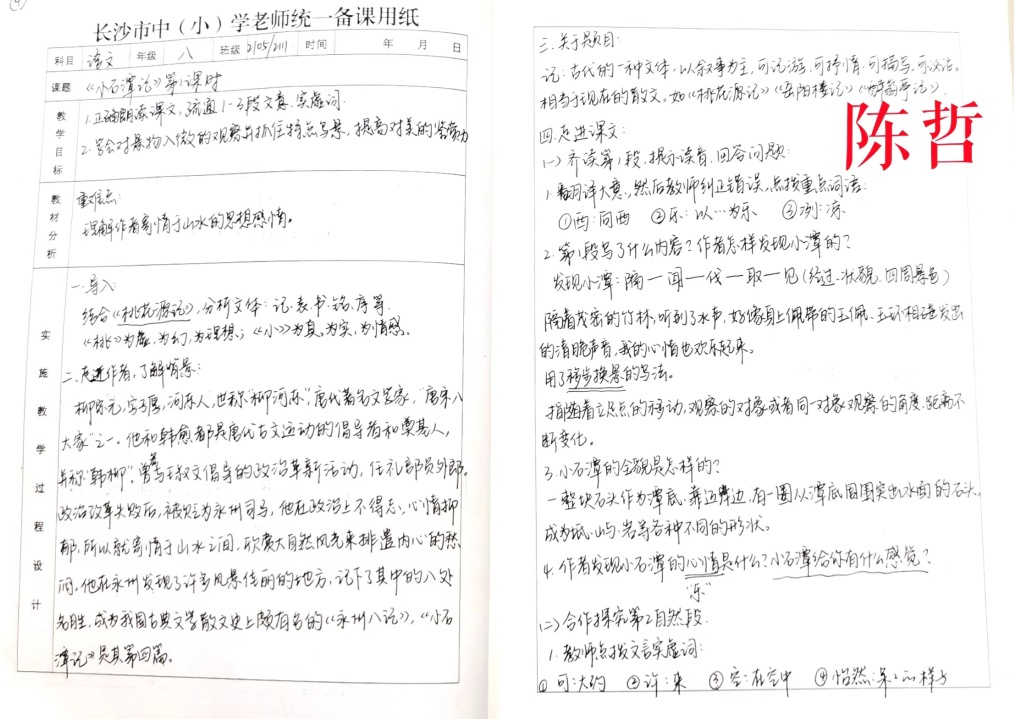 长沙市中（小）学老师统一备课用纸
科目 语文 年级 八 班级 2105/2111 时间 年 月 日
课题 《小石潭记》第1课时
教学目标
1.正确朗读课文，疏通1-3段文意、实虚词.
2.学会对景物入微的观察并抓住特点写景，提高对美的鉴赏力
教材分析
重难点:
理解作者寄情于山水的思想感情。
实施教学过程设计
一.导入:
结合《桃花源记》，分析文体：记.表.书.铭.序等.
《桃》为虚，为幻，为理想；《小》为真，为实，为情感。
二.走进作者，了解背景:
柳宗元，字子厚，河东人，也称"柳河东"，唐代著名文学家，"唐宋八
大家"之一。他和韩愈都是唐代古文运动的倡导者和奠基人，
并称"韩柳"。曾参与王叔文倡导的政治革新活动，任礼部员外郎。
政治改革失败后，被贬为永州司马，他在政治上不得志，心情抑
郁，所以就寄情于山水之间，欣赏大自然风光来排遣内心的愁
闷。他在永州发现了许多风景佳丽的地方，记下了其中的八处
名胜，成为我国古典文学散文史上颇有名的《永州八记》，《小石
潭记》是其第四篇。
三.关于题目:
记：古代的一种文体，以叙事为主，可记游.可抒情.可描写.可议论。
相当于现在的散文。如《桃花源记》《岳阳楼记》《醉翁亭记》.
陈哲
四.走进课文:
(一)齐读第1段，提示读音.回答问题:
1.翻译大意，然后教师纠正错误，点拨重点词语:
①西:向西 ②乐:以…为乐 ③冽:凉
2.第1段写了什么内容？作者怎样发现小潭的？
发现小潭：隔—闻—伐—取—见(经过.状貌.四周景色)
隔着茂密的竹林，听到了水声，好像身上佩带的玉佩、玉环相碰发出
的清脆声音，我的心情也欢乐起来。
用了移步换景的写法。
指随着立足点的移动，观察的对象或者同一对象观察的角度.距离不
断变化。
3.小石潭的全貌是怎样的？
一整块石头作为潭底，靠近岸边.有一圈从潭底周围突出水面的石头，
成为坻.屿.岩等各种不同的形状。
4.作者发现小石潭的心情是什么？小石潭给你有什么感觉？
"乐"
(二)合作探究第2自然段.
1.教师点拨文言实虚词:
①可:大约 ②许:来 ③空:在空中 ④怡然:呆呆的样子